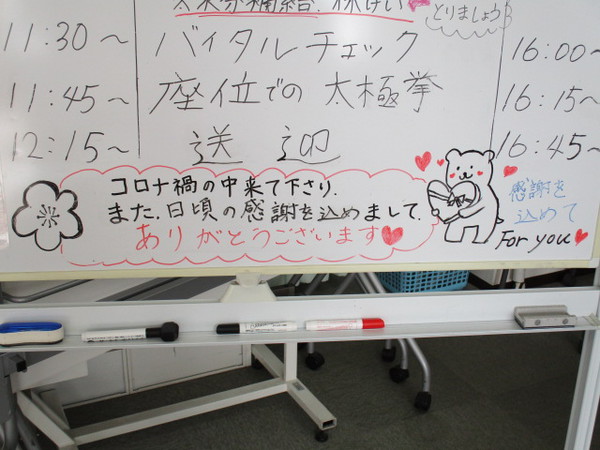 水分補給、休けい
とりましょう
11:30〜 バイタルチェック 16:00〜
11:45〜 座位での太極拳 16:15〜
12:15〜 送迎 16:45〜
コロナ禍の中来て下さり、
また、日頃の感謝を込めまして、
ありがとうございます
感謝を
込めて
For you